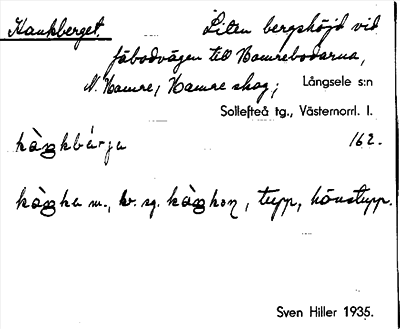 Kankberget. Liten bergshöjd vid
fäbodvägen till Hamrebodarna,
N. Hamre, Hamre skog; Långsele s:n
Sollefteå tg., Västernorrl. l.
162.
m., sg. tupp, hönstupp.
Sven Hiller 1935.